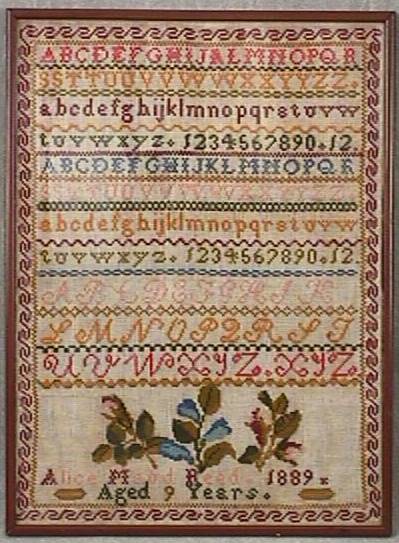 ABCDEFGHIJKLMNOPQR
SSTTUUVVWWXXYYZZ.
abcdefghijklmnopqrstuvw
tuvwxyz. 1234567890.12.
ABCDEFGHIJKLMNOPQR
SSTTUUVVWWXXYYZZ.
abcdefghijklmnopqrstuvw
tuvwxyz. 1234567890.12.
ABCDEFGHIK
LMNOPQRST
UVWXYZ.XYZ.
Alice Maud Reed. 1889
Aged 9 Years.